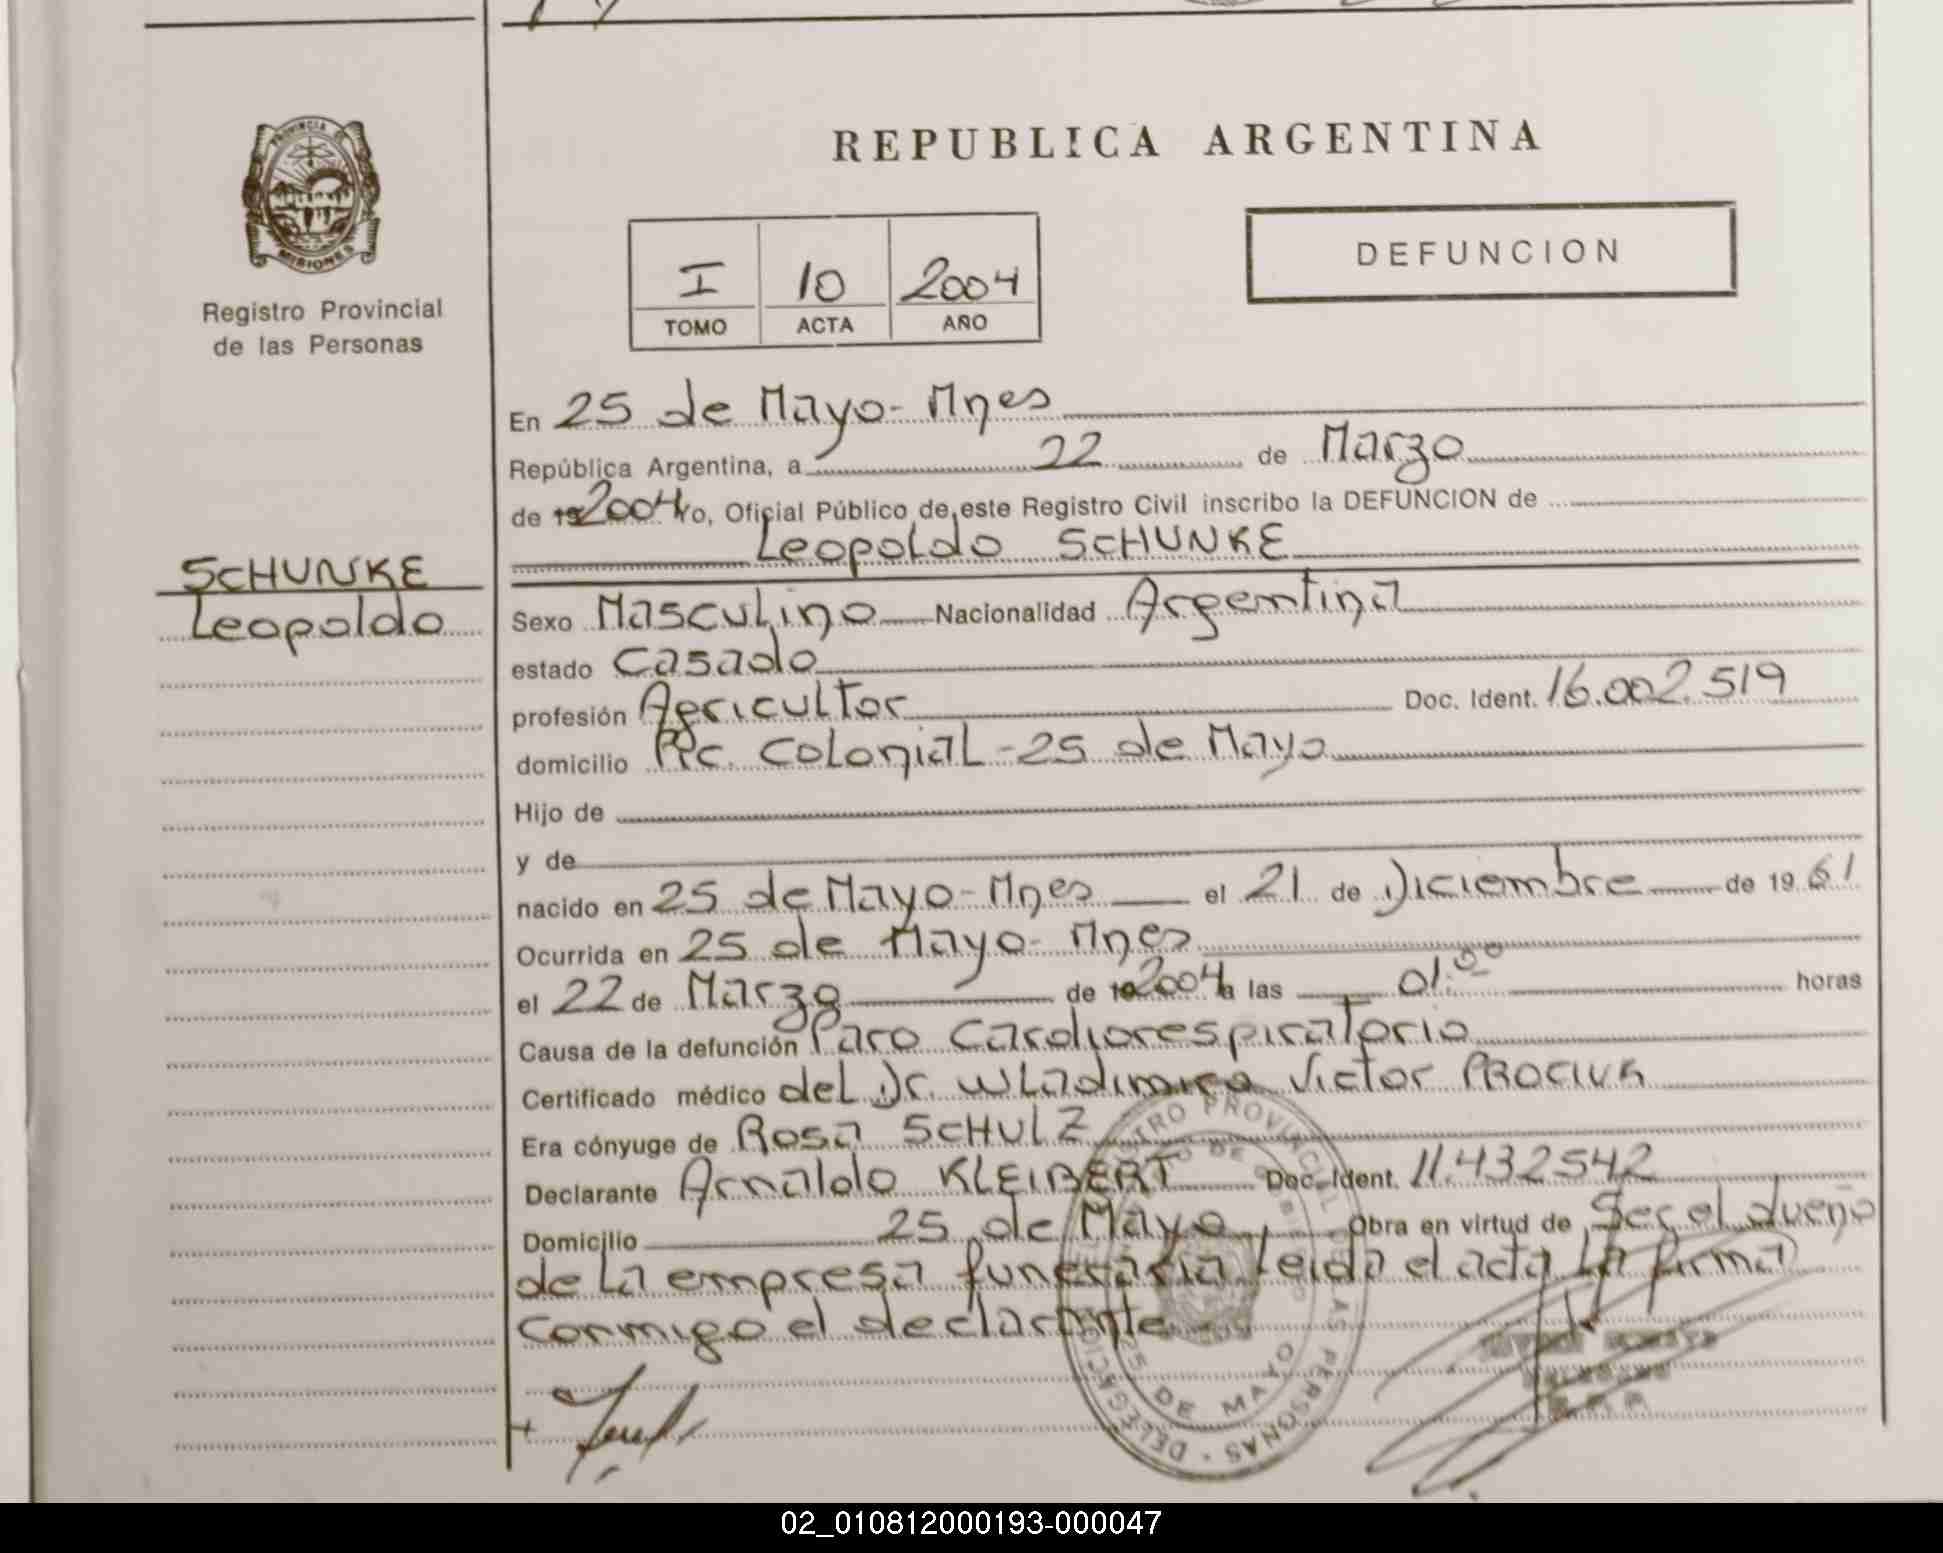 REPUBLICA ARGENTINA
PROVINCIA DE
MISIONES
Registro Provincial
de las Personas
I 10 2004
TOMO ACTA AÑO
DEFUNCION
En 25 de Mayo - Mnes
República Argentina, a 22 de Marzo
de 192004 Yo, Oficial Público de este Registro Civil inscribo la DEFUNCION de
Leopoldo SCHUNKE
SCHUNKE
Leopoldo
Sexo Masculino Nacionalidad Argentina
estado Casado
profesión Agricultor Doc. Ident. 16.002.519
domicilio Pic. Colonial - 25 de Mayo
Hijo de
y de
nacido en 25 de Mayo - Mnes el 21 de Diciembre de 1961
Ocurrida en 25 de Mayo - Mnes
el 22 de Marzo de 192004 a las 01.00 horas
Causa de la defunción Paro Cardiorespiratorio
Certificado médico del Dr. Wladimiro Victor PROCIUK
Era cónyuge de Rosa SCHULZ
Declarante Arnaldo KLEIBERT Doc. Ident. 11.432542
Domicilio 25 de Mayo Obra en virtud de Ser el dueño
de la empresa funeraria leida el acta la firma
conmigo el declarante
REGISTRO PROVINCIAL DE LAS PERSONAS - DELEGACION
25 DE MAYO
02_010812000193-000047